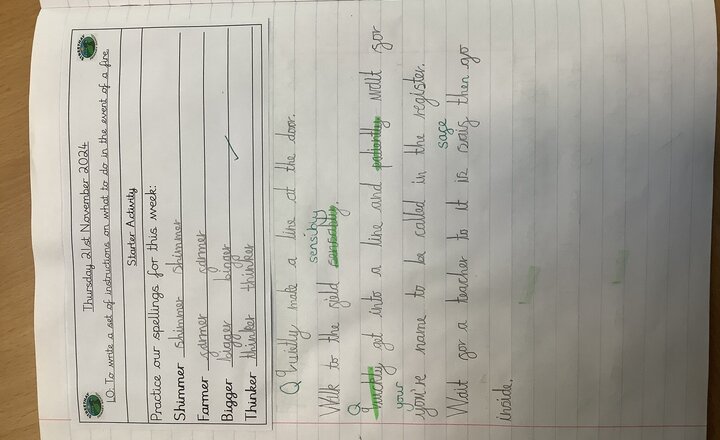 Thursday 21st November 2024
LO: To write a set of instructions on what to do in the event of a fire
Starter Activity
Practice our spellings for this week:
Shimmer shimmer shimmer
Farmer farmer farmer
Bigger bigger bigger
Thinker thinker thinker
Q Quietly make a line at the door.
sensibly
Walk to the field
Q
get into a line and patiently wait for
your
you're name to be called in the register.
safe
Wait for a teacher to it is then go
inside.